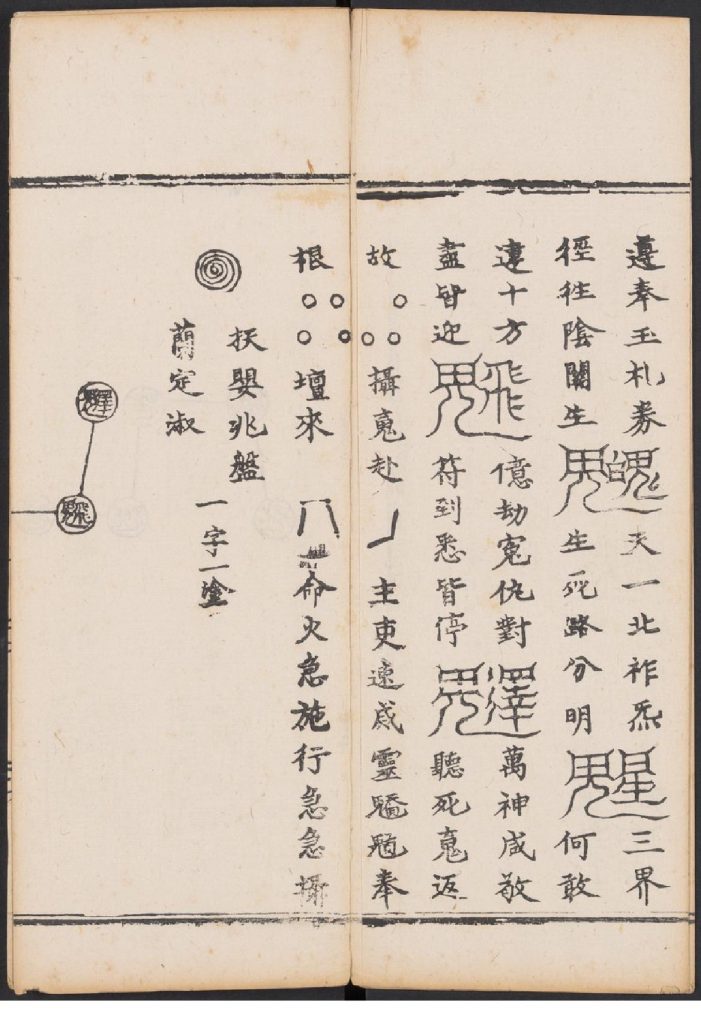 遵奉玉札券天一北祚炁三界
徑往陰關生生死路分明何敢
違十方飛億劫冤仇對萬神咸敬
盡皆迎符到悉皆停聽死䰟返
故攝䰟赴主吏速咸靈奉
根壇來命火急施行急急攝
嬰兆盤一字一塗
蘭定淑